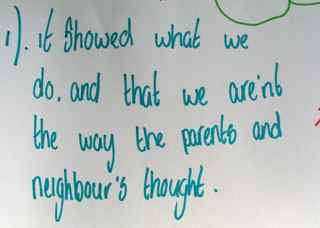 1). it showed what we
do. and that we are'nt
the way the parents and
neighbour's thought.